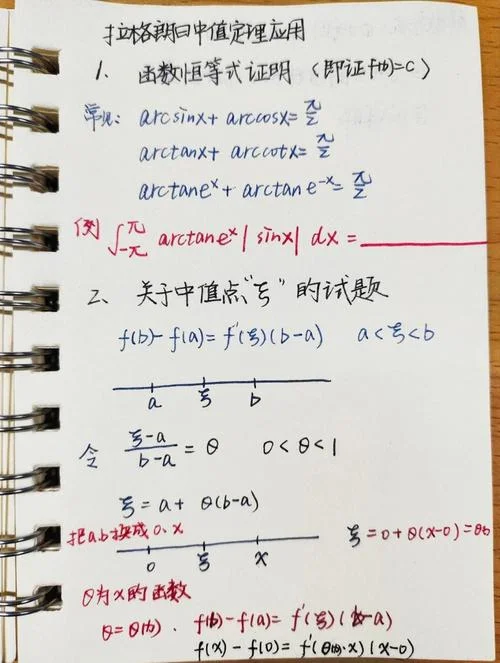 拉格朗日中值定理应用
1. 函数恒等式证明（即证f(x)=C）
常见: arcsinx+ arccosx= π/2
arctanx+ arccotx= π/2
arctane^x + arctane^-x = π/2
例 ∫_-π^π arctane^x |sinx| dx = ______
二、关于中值点"ξ"的试题
f(b)-f(a)= f'(ξ)(b-a) a<ξ<b
a ξ b
令 (ξ-a)/(b-a) = θ 0<θ<1
ξ = a+ θ(b-a)
把a,b换成0、x
0 ξ x
ξ=0+θ(x-0)=θx
θ为x的函数
θ=θ(x). f(b)-f(a)= f'(ξ)(b-a)
f(x)-f(0)=f'(θ(x)·x)(x-0)